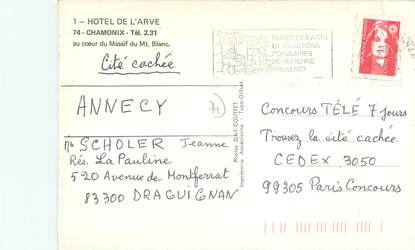 1 – HOTEL DE L'ARVE
74 - CHAMONIX - Tél. 2.31
au cœur du Massif du Mt. Blanc.
Cité cachée
MUSEE DES ARTS
ET TRADITIONS
POPULAIRES
DE MOYENNE
PROVENCE
ANNECY
71
Mlle SCHOLER Jeanne
Rés. La Pauline
520 Avenue de Montferrat
83300 DRAGUIGNAN
Photos GAY-COUTTET
Imprimerie Annecienne - Typo-Offset.
Concours TÉLÉ 7 jours
Trouvez la cité cachée
CEDEX 3050
99305 Paris Concours